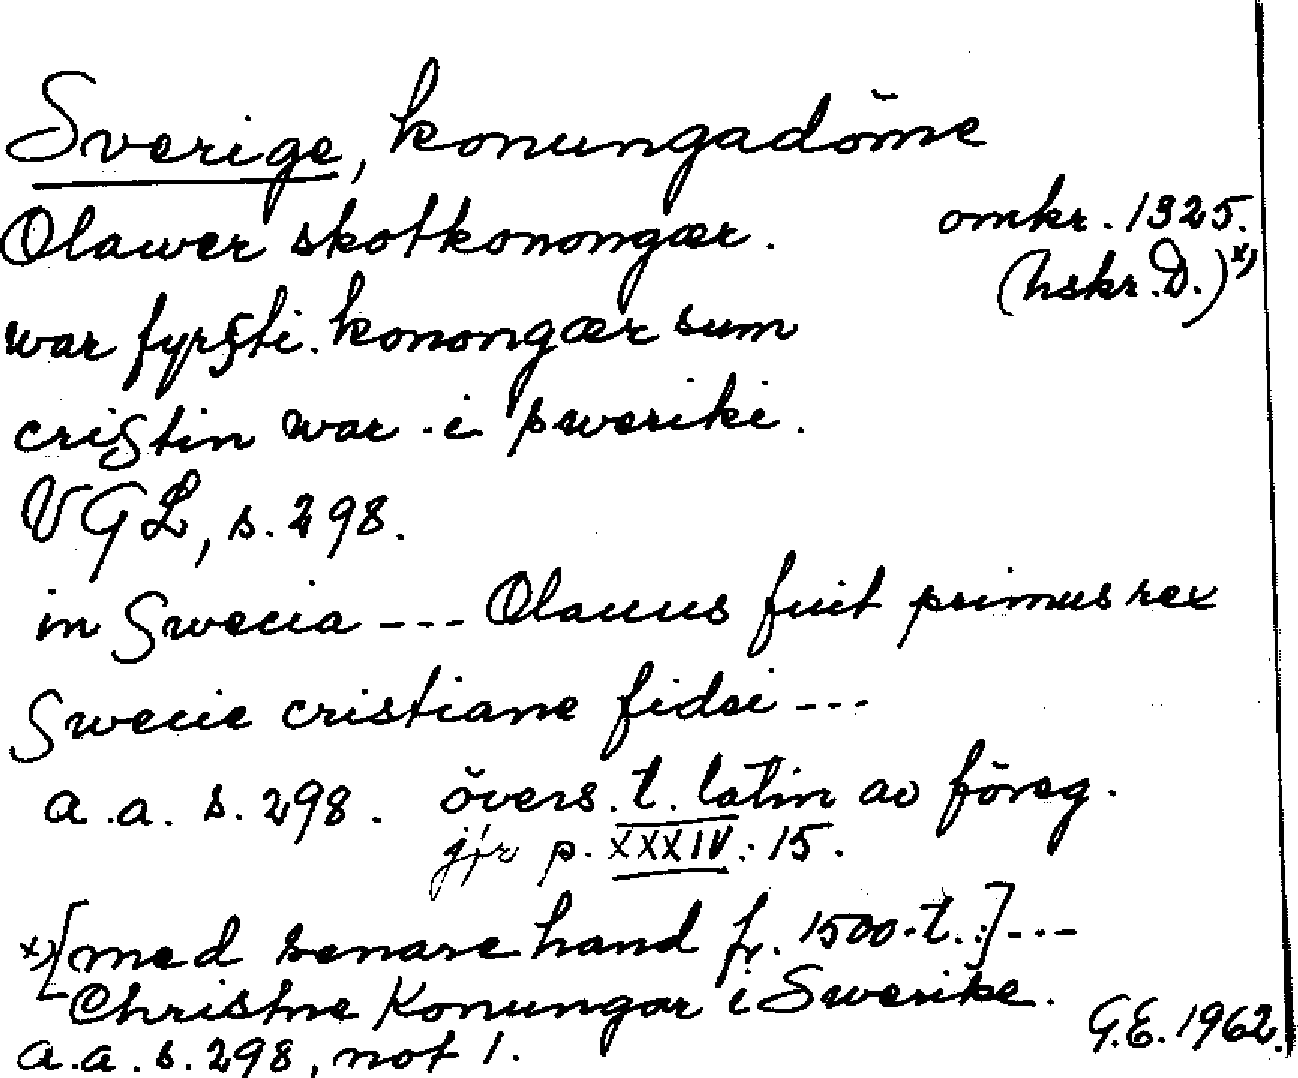 Sverige, konungadöme
Olawer skotkonongær. omkr. 1325.
(hskr. D.) x)
war fyrsti. konongær sum
cristin war i sweriki.
VGL, s. 298.
in Swecia --- Olauus fuit primus rex
Swecie cristiane fidei ---
a.a. s. 298. övers. t. latin av föreg.
jfr p. XXXIV: 15.
x) [med senare hand fr. 1500-t.:] ---
Christne Konungar i Swerike.
a.a. s. 298, not 1. G.E. 1962.